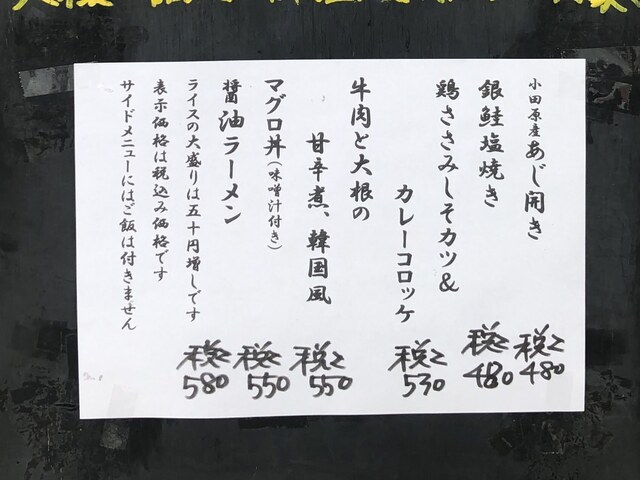 小田原産あじ開き
税込480
銀鮭塩焼き
税込480
鶏ささみしそカツ&
カレーコロッケ
税込530
牛肉と大根の
甘辛煮、韓国風
税込550
マグロ丼(味噌汁付き)
税込550
醤油ラーメン
税込580
ライスの大盛りは五十円増しです
表示価格は税込み価格です
サイドメニューにはご飯は付きません